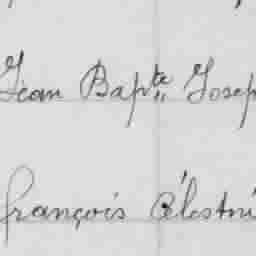 Jean Bapte Josep
françois Célestri